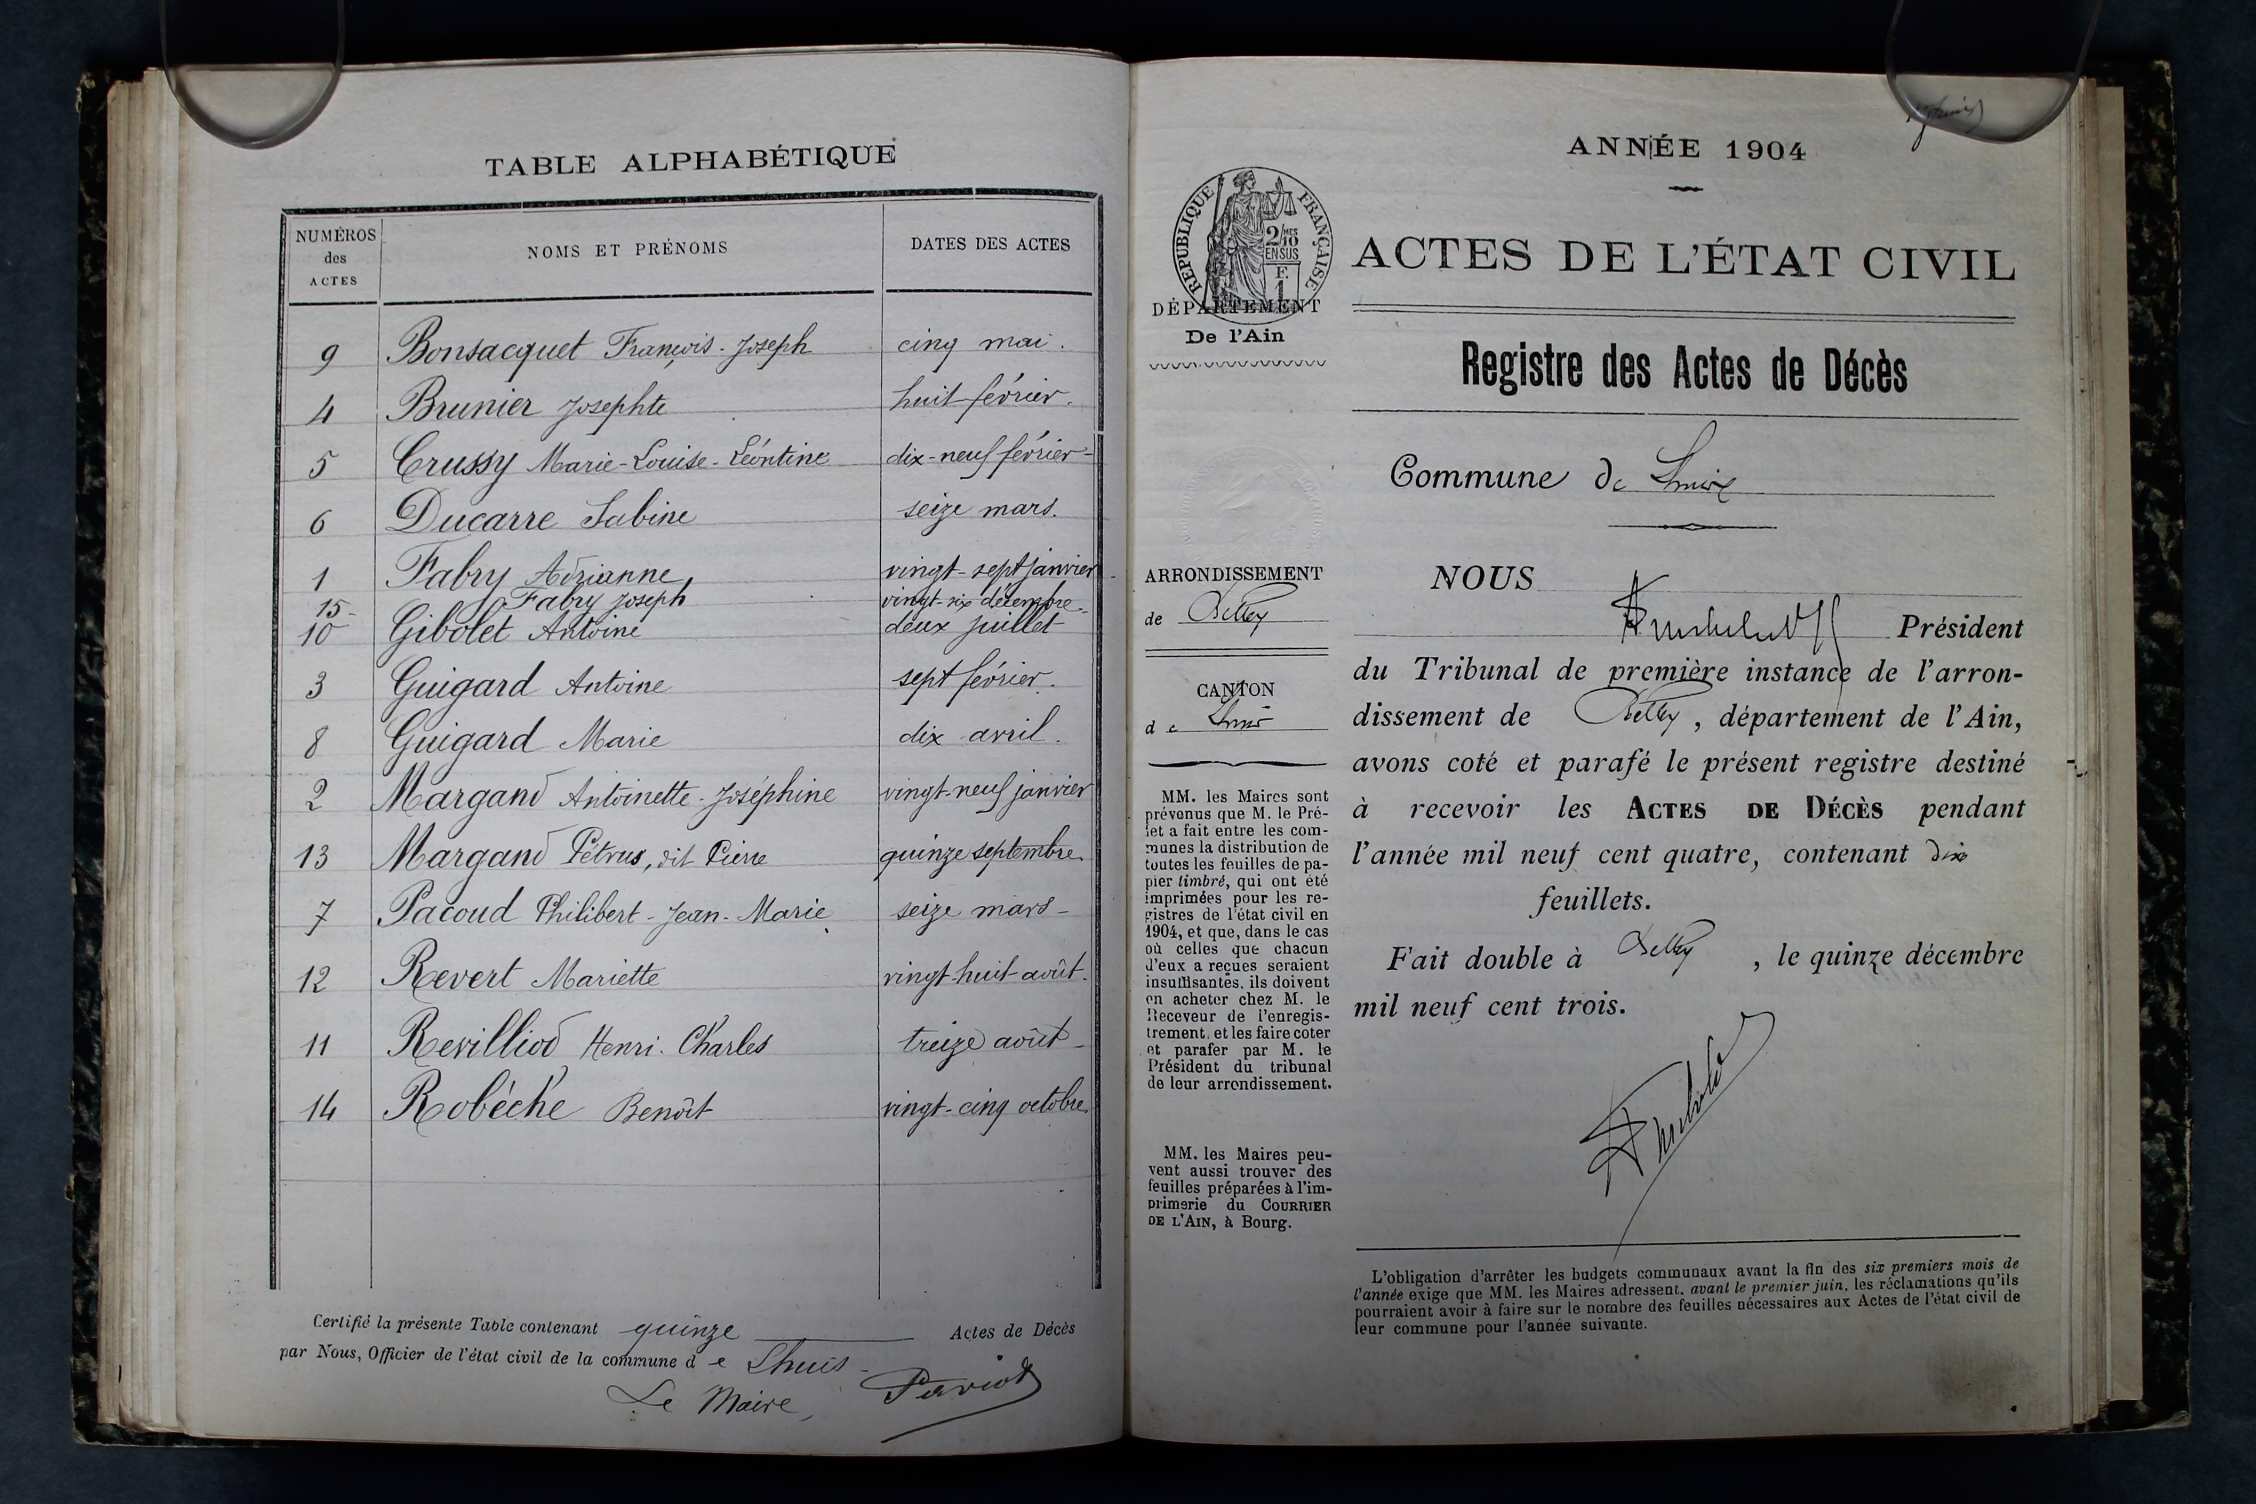 TABLE ALPHABÉTIQUE
NUMÉROS des ACTES NOMS ET PRÉNOMS DATES DES ACTES
9 Bonsacquet François-Joseph cinq mai.
4 Brunier Josephte huit février.
5 Crussy Marie-Louise-Léontine dix-neuf février-
6 Ducarre Sabine seize mars.
1 Fabry Adrianne vingt-sept janvier
15- Fabry Joseph vingt-six décembre-
10 Gibolet Antoine deux juillet
3 Guigard Antoine sept février.
8 Guigard Marie dix avril.
2 Margand Antoinette-Joséphine vingt-neuf janvier
13 Margand Pétrus, dit Pierre quinze septembre.
7 Pacoud Philibert-Jean-Marie seize mars-
12 Revert Mariette vingt-huit août.
11 Revilliod Henri-Charles treize août-
14 Robéche Benoît vingt-cinq octobre.
Certifié la présente Table contenant quinze Actes de Décès
par Nous, Officier de l'état civil de la commune d e Lhuis-
Le Maire,
ANNÉE 1904
RÉPUBLIQUE FRANÇAISE
2/10 MES
EN SUS
F.
1
DÉPARTEMENT
De l'Ain
ARRONDISSEMENT
de Belley
CANTON
de Lhuis
MM. les Maires sont
prévenus que M. le Pré-
fet a fait entre les com-
munes la distribution de
toutes les feuilles de pa-
pier timbré, qui ont été
imprimées pour les re-
gistres de l'état civil en
1904, et que, dans le cas
où celles que chacun
d'eux a reçues seraient
insuffisantes, ils doivent
en acheter chez M. le
Receveur de l'enregis-
trement, et les faire coter
et parafer par M. le
Président du tribunal
de leur arrondissement.
MM. les Maires peu-
vent aussi trouver des
feuilles préparées à l'im-
primerie du COURRIER
DE L'AIN, à Bourg.
ACTES DE L'ÉTAT CIVIL
Registre des Actes de Décès
Commune de Lhuis
NOUS
Président
du Tribunal de première instance de l'arron-
dissement de Belley, département de l'Ain,
avons coté et parafé le présent registre destiné
à recevoir les ACTES DE DÉCÈS pendant
l'année mil neuf cent quatre, contenant dix
feuillets.
Fait double à Belley, le quinze décembre
mil neuf cent trois.
L'obligation d'arrêter les budgets communaux avant la fin des six premiers mois de
l'année exige que MM. les Maires adressent, avant le premier juin, les réclamations qu'ils
pourraient avoir à faire sur le nombre des feuilles nécessaires aux Actes de l'état civil de
leur commune pour l'année suivante.